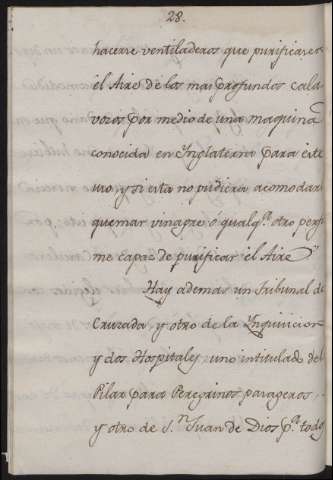 28.
hacerse ventiladeros que purificasen
el Aire de los mas profundos cala
vozos por medio de una maquina
conocida en Inglaterra para este
uso, y si esta no pudiera acomodar
quemar vinagre ó qualq.r otro perfu
me capaz de purificar el Aire
Hay ademas un Tribunal de
Cruzada, y otro de la Inquisicion
y dos Hospitales, uno intitulado del
Pilar para Peregrinos pasageros,
y otro de S.n Juan de Dios p.a todos